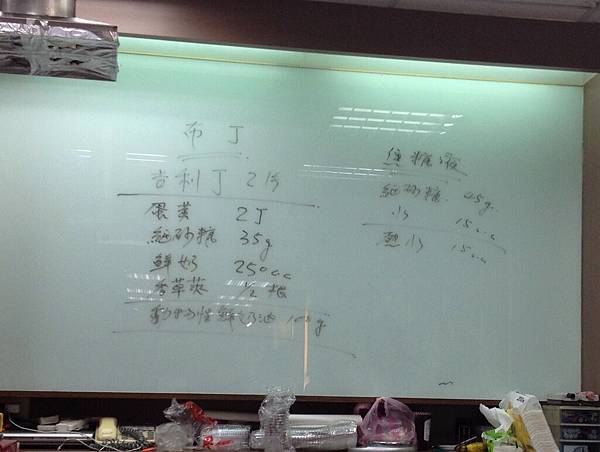 布丁
吉利丁 2片
蛋黃 2丁
細砂糖 35g
鮮奶 250cc
香草莢 1/2根
動物性鮮奶油 100g
焦糖液
細砂糖 45g
水 15cc
熱水 15cc